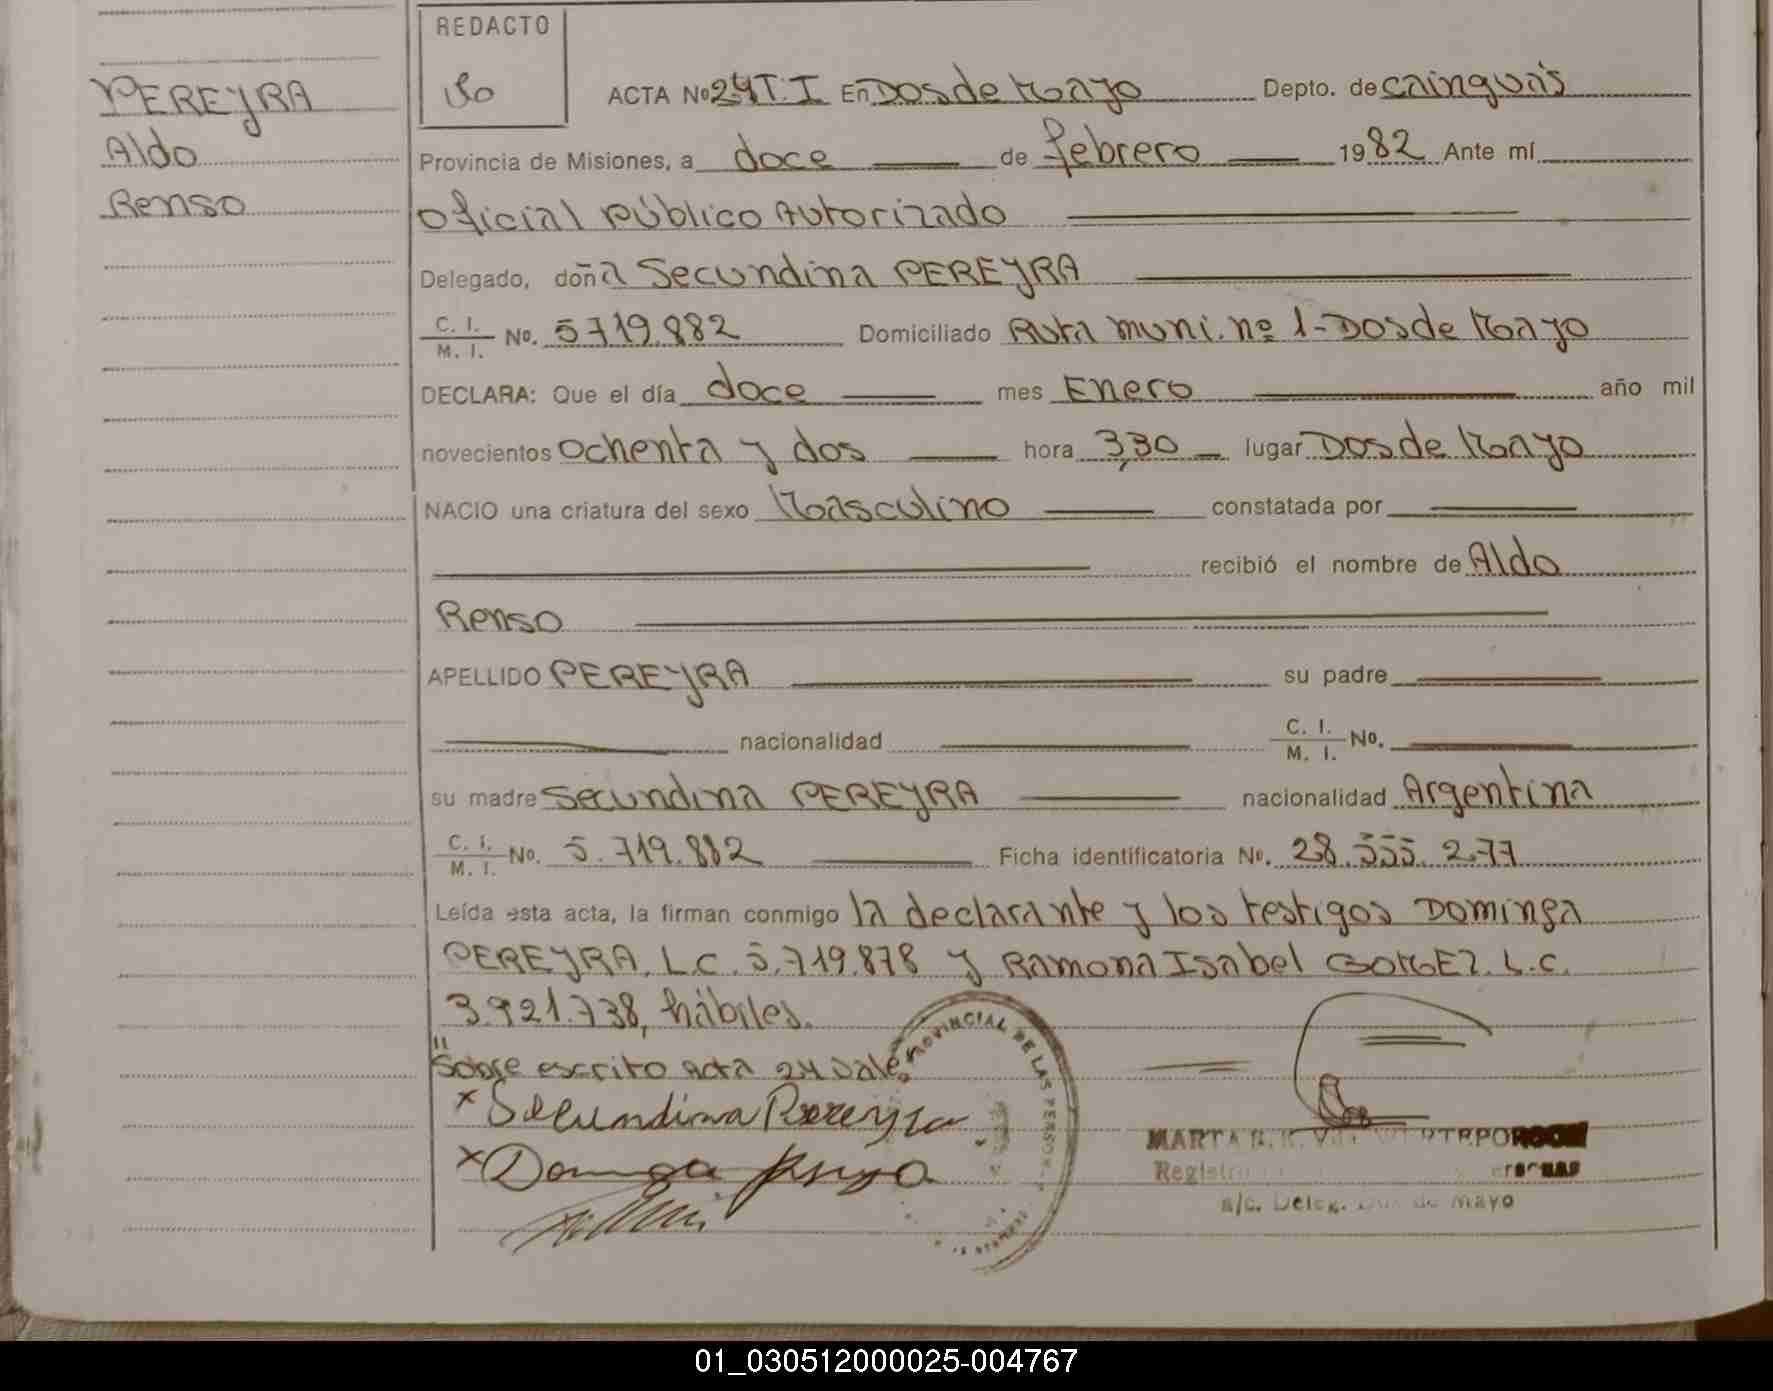 REDACTO
PEREYRA
Aldo
Renso
ACTA No 24 T. I En Dos de Mayo Depto. de cainguás
Provincia de Misiones, a doce de febrero 1982 Ante mí
Oficial Público Autorizado
Delegado, doña Secundina PEREYRA
C. I. M. I. No. 5719.882 Domiciliado Ruta muni. nº 1-Dos de Mayo
DECLARA: Que el día doce mes Enero año mil
novecientos ochenta y dos hora 3,30 lugar Dos de Mayo
NACIO una criatura del sexo Masculino constatada por
recibió el nombre de Aldo
Renso
APELLIDO PEREYRA su padre
nacionalidad C. I. M. I. No.
su madre Secundina PEREYRA nacionalidad Argentina
C. I. M. I. No. 5.719.882 Ficha identificatoria No. 28.555.277
Leída esta acta, la firman conmigo la declarante y los testigos Dominga
PEREYRA. L.C. 5.719.878 y Ramona Isabel GOMEZ. L.C.
3.921.738, hábiles.
"Sobre escrito acta 24 vale.
x Secundina Pereyra
x
PROVINCIAL DE LAS PERSON
MARTA
Registro
a/c. Deleg. Dos de Mayo
01_030512000025-004767